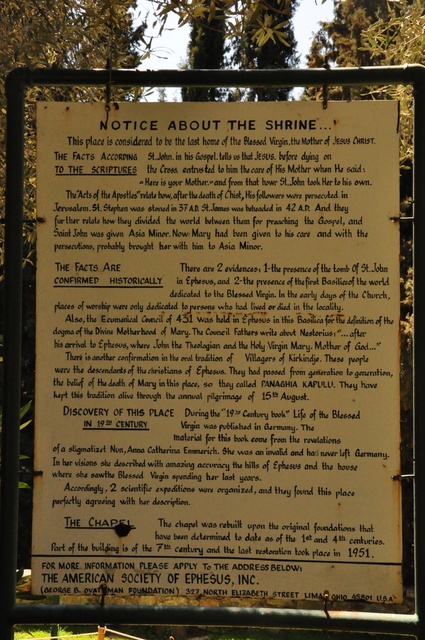 NOTICE ABOUT THE SHRINE...
This place is considered to be the last home of the Blessed Virgin, the Mother of JESUS CHRIST.
THE FACTS ACCORDING St. John, in his Gospel, tells us that JESUS, before dying on
TO THE SCRIPTURES the Cross, entrusted to him the care of His Mother when He said:
"Here is your Mother." and from that hour St. John took Her to his own.
The Acts of the Apostles relate how, after the death of Christ, His followers were persecuted in
Jerusalem. St. Stephen was stoned in 37 A.D. St. James was beheaded in 42 A.D. And they
further relate how they divided the world between them for preaching the Gospel, and
Saint John was given Asia Minor. Now Mary had been given to his care and with the
persecutions, probably brought her with him to Asia Minor.
THE FACTS ARE There are 2 evidences: 1-the presence of the tomb Of St. John
CONFIRMED HISTORICALLY in Ephesus, and 2-the presence of the first Basilica of the world
dedicated to the Blessed Virgin. In the early days of the Church,
places of worship were only dedicated to persons who had lived or died in the locality.
Also, the Ecumenical Council of 431 was held in Ephesus in this Basilica for the definition of the
dogma of the Divine Motherhood of Mary. The Council Fathers write about Nestorius: "... after
his arrival to Ephesus, where John the Theologian and the Holy Virgin Mary, Mother of God..."
There is another confirmation in the oral tradition of Villagers of Kirkindje. These people
were the descendants of the christians of Ephesus. They had passed from generation to generation,
the belief of the death of Mary in this place, so they called PANAGHIA KAPULU. They have
kept this tradition alive through the annual pilgrimage of 15th August.
DISCOVERY OF THIS PLACE During the "19th Century book" Life of the Blessed
IN 19TH CENTURY Virgin was published in Germany. The
material for this book come from the revelations
of a stigmatized Nun, Anna Catherina Emmerich. She was an invalid and had never left Germany.
In her visions she described with amazing accuracy the hills of Ephesus and the house
where she saw the Blessed Virgin spending her last years.
Accordingly, 2 scientific expeditions were organized, and they found this place
perfectly agreeing with her description.
THE CHAPEL The chapel was rebuilt upon the original foundations that
have been determined to date as of the 1st and 4th centuries.
Part of the building is of the 7th century and the last restoration took place in 1951.
FOR MORE INFORMATION PLEASE APPLY TO THE ADDRESS BELOW:
THE AMERICAN SOCIETY OF EPHESUS, INC.
(GEORGE B. QUATMAN FOUNDATION) 327 NORTH ELIZABETH STREET LIMA, OHIO 45801 U.S.A